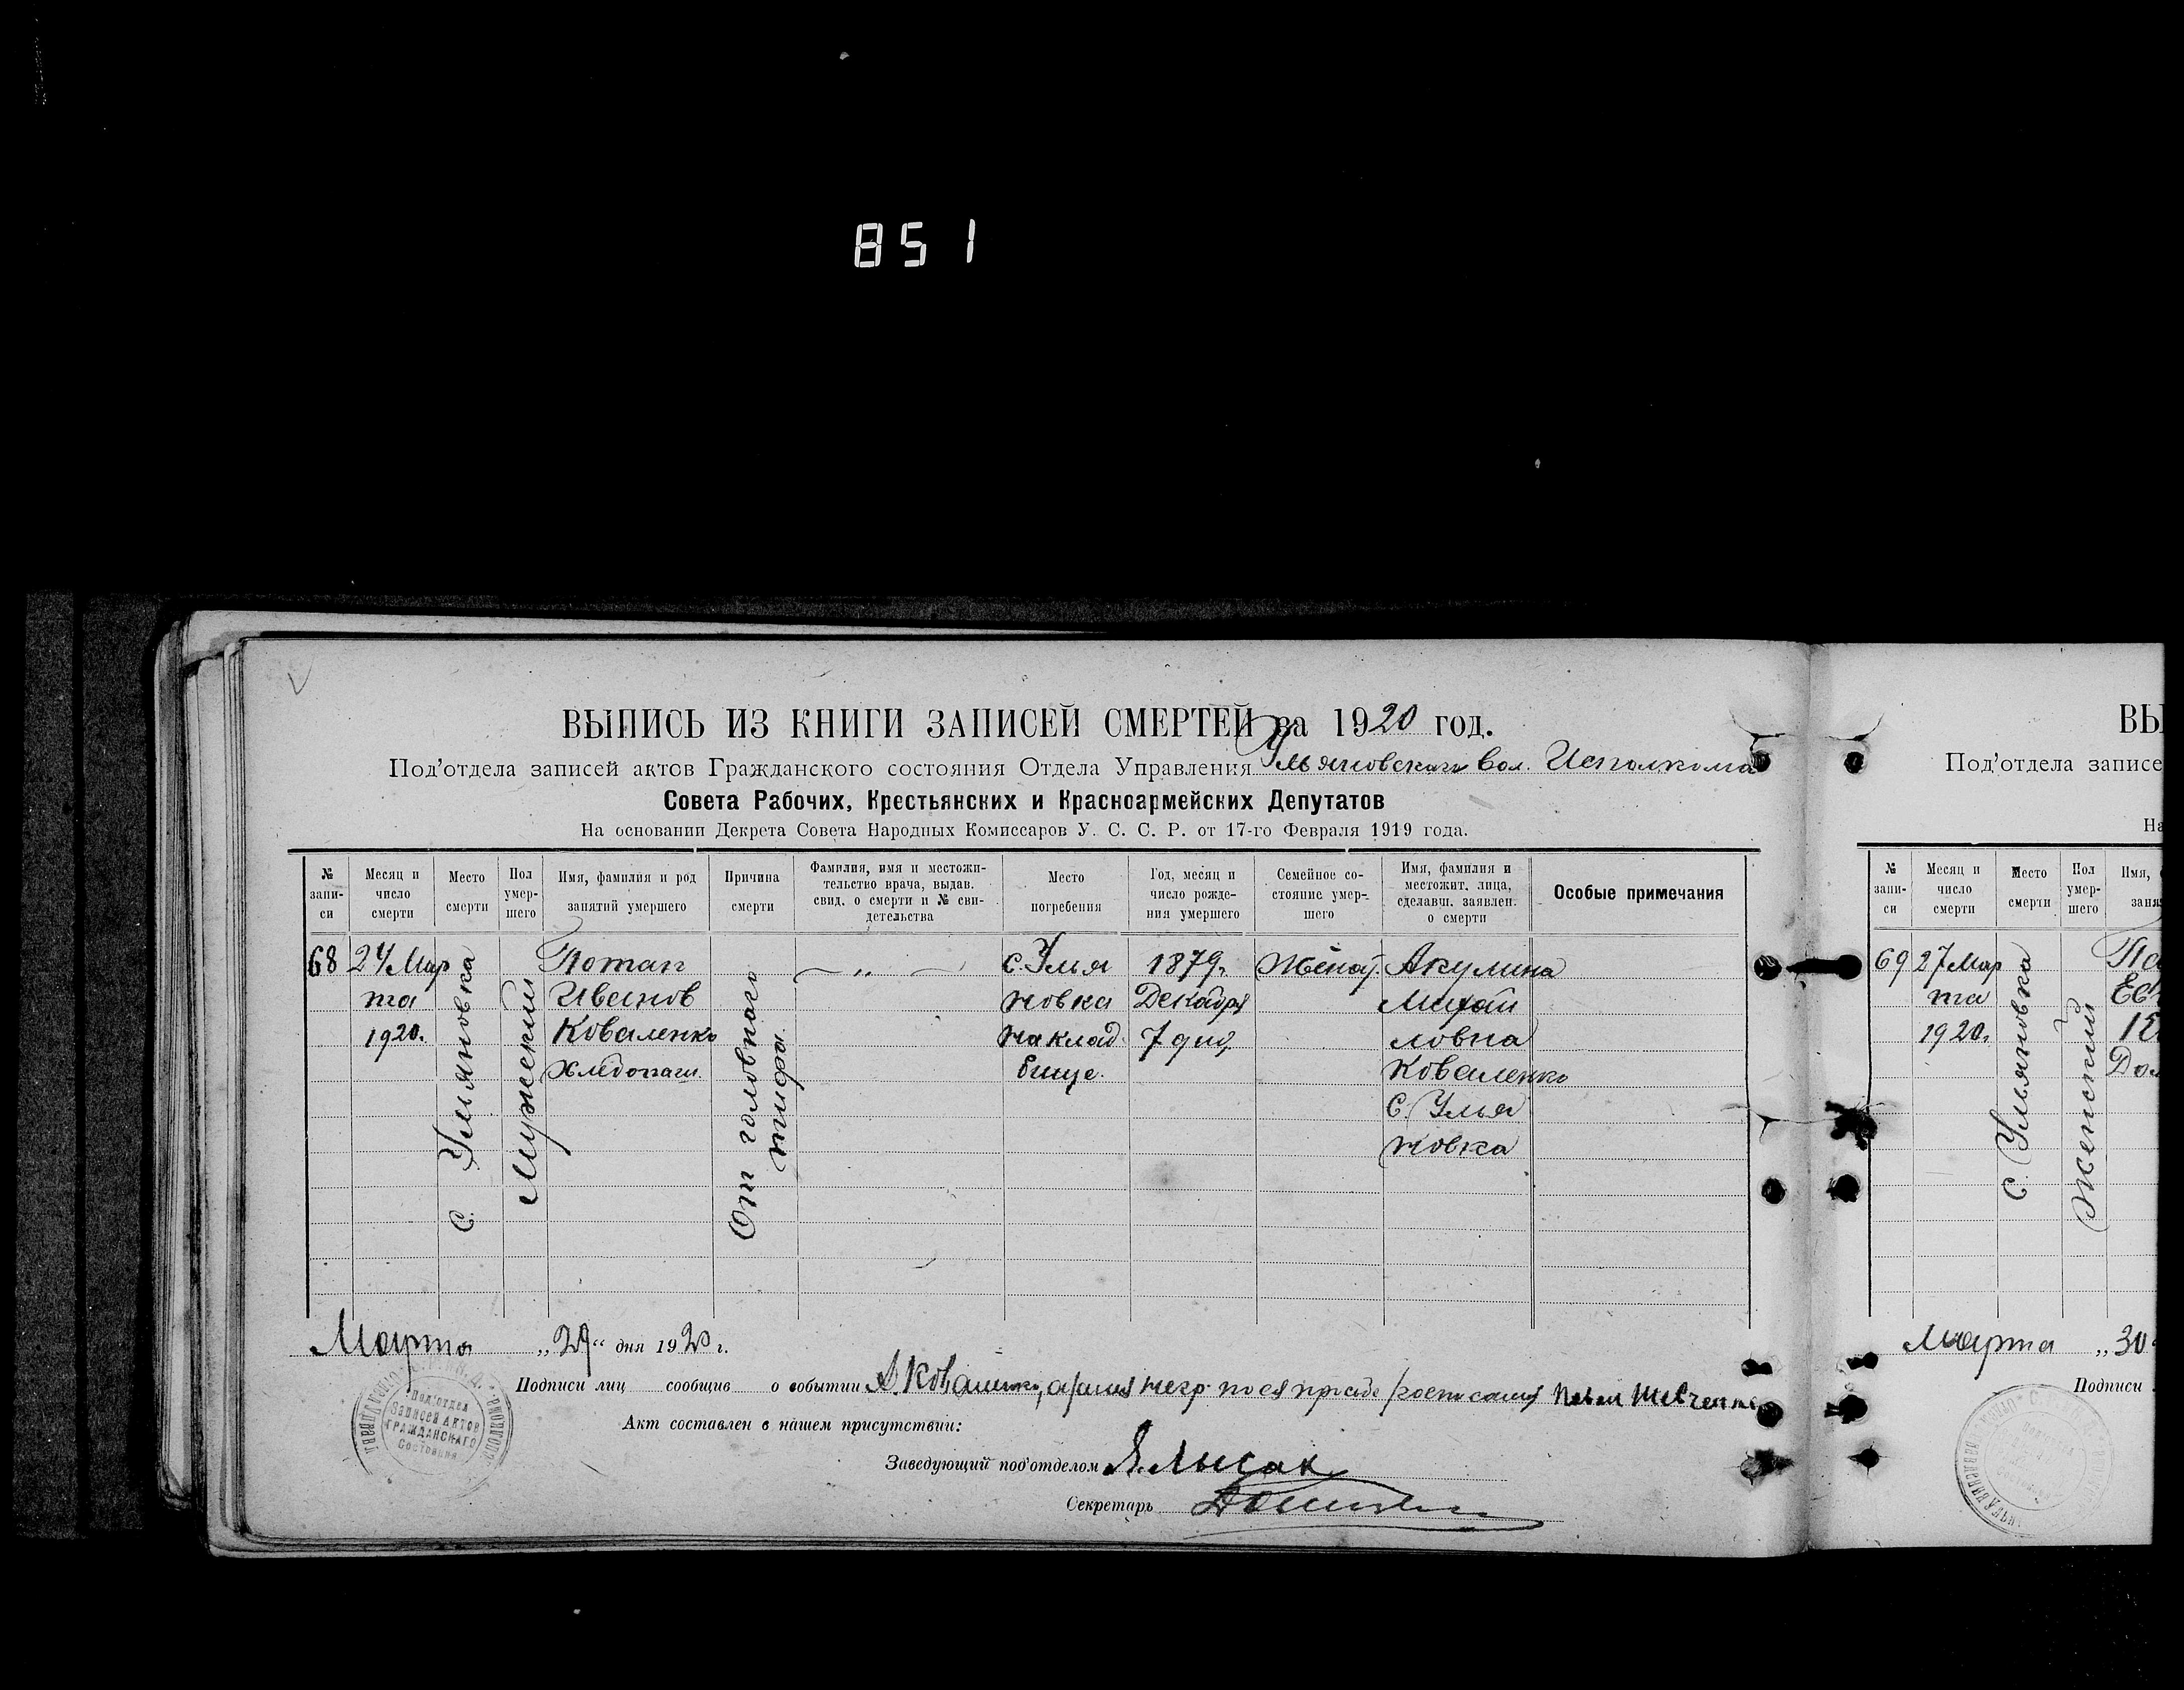 851
ВЫПИСЬ ИЗ КНИГИ ЗАПИСЕЙ СМЕРТЕЙ за 1920 год.
Под'отдела записей актов Гражданского состояния Отдела Управления Ульяновского Вол. Исполкома
Совета Рабочих, Крестьянских и Красноармейских Депутатов
На основании Декрета Совета Народных Комиссаров У. С. С. Р. от 17-го Февраля 1919 года.
№ записи
Месяц и число смерти
Место смерти
Пол умершего
Имя, фамилия и род занятий умершего
Причина смерти
Фамилия, имя и местожительство врача, выдав. свид. о смерти и № свидетельства
Место погребения
Год, месяц и число рождения умершего
Семейное состояние умершего
Имя, фамилия и местожит. лица, сделавш. заявлен. о смерти
Особые примечания
68
24 Мар
та
1920.
с. Ульяновка
Мужеский
Потап
Иванов
Коваленко
Хлебопаш.
От головного
тифа.
„
с. Улья
новка
на клад
бище.
1879г.
Декабря
7 дня
Женат.
Акулина
Михай
ловна
Коваленко
с. Улья
новка
Марта „29“ дня 1920 г.
Подписи лиц сообщив о событии А. Коваленко, а за нея негр. по ея прозбе росписался Павел Шевченко
Акт составлен в нашем присутствии:
Заведующий под'отделом Я. Лысак
Секретарь
Под'отдел
Записей Актов
Гражданскаго
Состояния
ВЫ
Под'отдела записе
На
№ записи
Месяц и число смерти
Место смерти
Пол умершего
Имя,
заня
69
27 Мар
та
1920г.
с. Ульяновка
Женский
До
Марта „30
Подписи